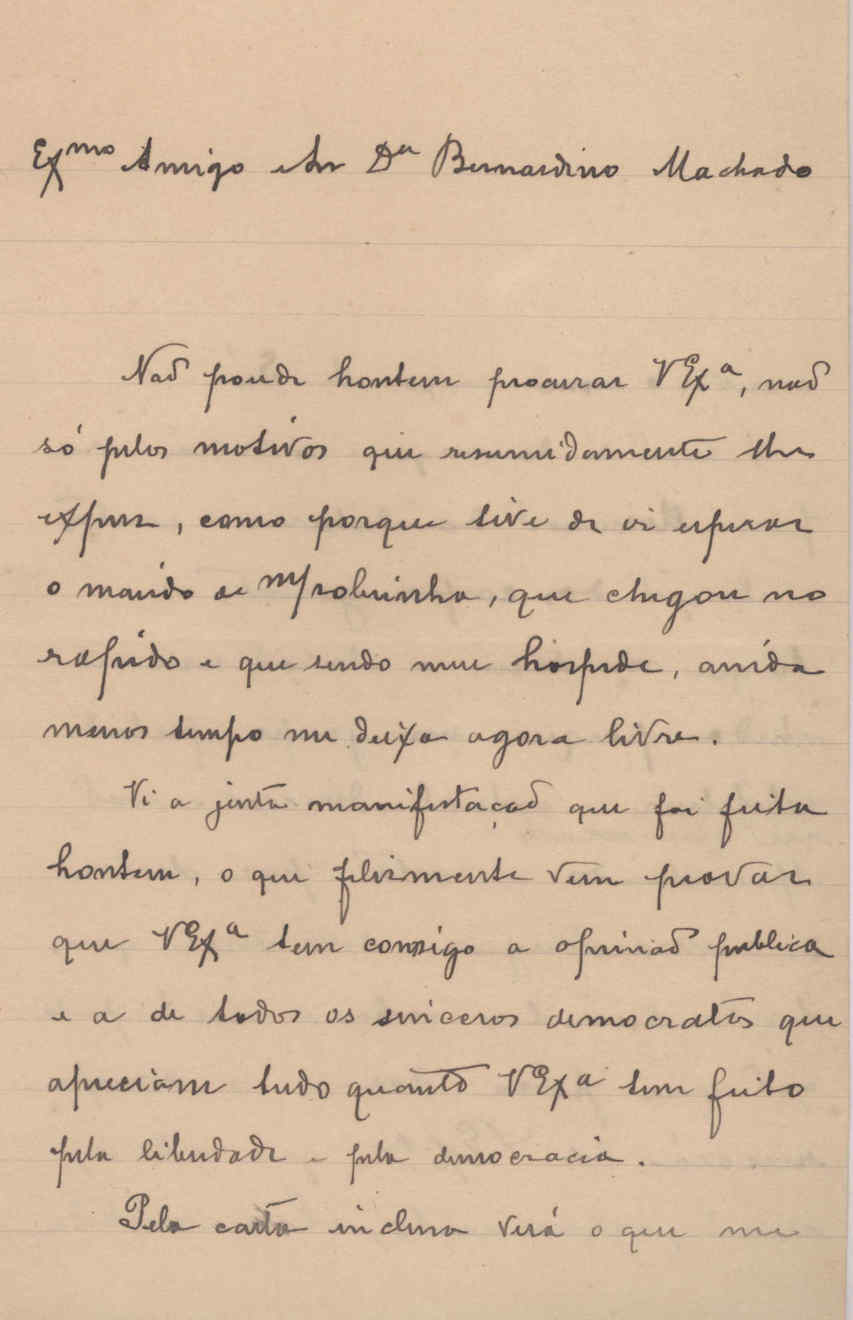 Ex^mo Amigo e Sr D^or Bernardino Machado
Naõ poude hontem procurar V Ex^a, naõ
só pelos motivos que resumidamente lhe
expuz, como porque tive de ir esperar
o marido de m/sobrinha, que chegou no
rapido e que sendo meu hospede, ainda
menos tempo me deixa agora livre.
Vi a justa manifestaçaõ que foi feita
hontem, o que felizmente vem provar
que V Ex^a tem consigo a opiniaõ publica
e a de todos os sinceros democratas que
apreciam tudo quanto V Ex^a tem feito
pela liberdade e pela democracia.
Pela carta inclusa verá o que me